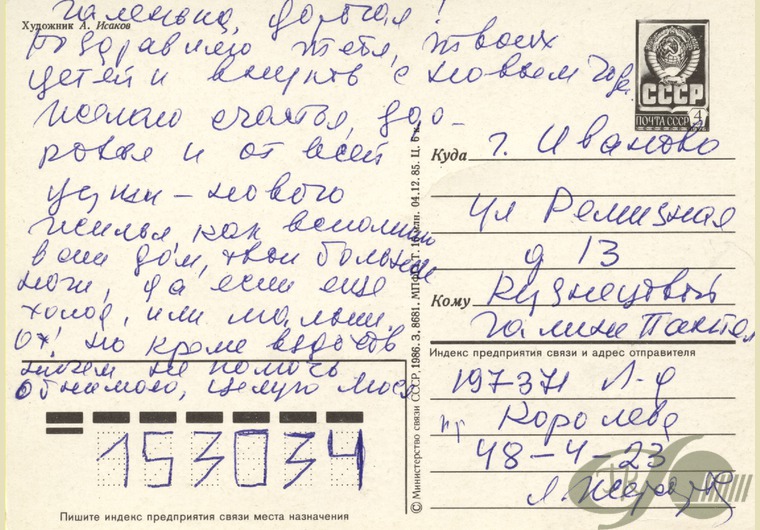 Художник А. Исаков
Галенька, дорогая!
Поздравляю тебя, твоих
детей и внуков с Новым годом.
Желаю счастья, здо-
ровья и от всей
души – нового
жилья, как вспомню
ваш дом, твои больные
ноги, да если еще
холод, или малыш.
Ох! но кроме вздохов
ничем не помочь
Обнимаю, целую Люся
ПОЧТА СССР
4
Куда г. Иваново
ул Ремизная
д 13
Кому Кузнецовой
Галине Пантел
Индекс предприятия связи и адрес отправителя
197371 Л-д
пр Королева
48-4-23
Л.
153034
Пишите индекс предприятия связи места назначения
© Министерство связи СССР, 1986. З. 8681. МПФГ. Т. 16 млн. 04.12.85. Ц. 6 к.